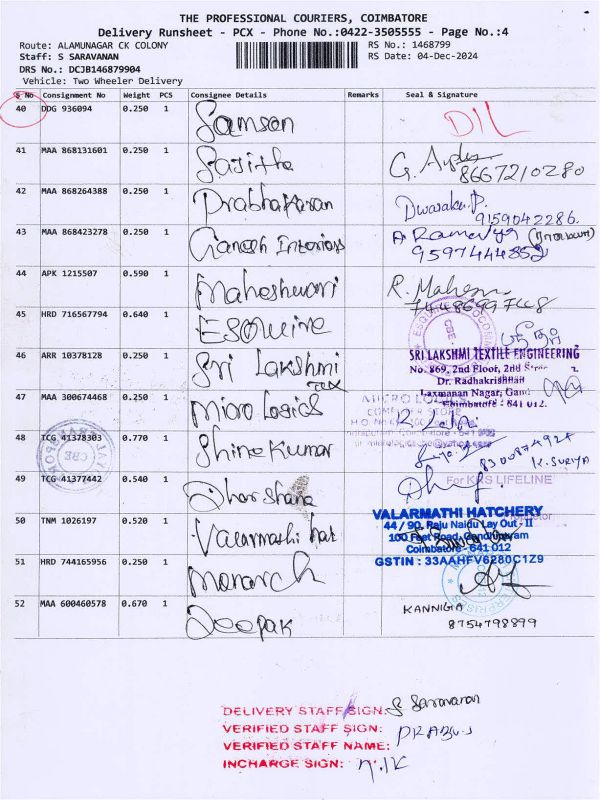 THE PROFESSIONAL COURIERS, COIMBATORE
Delivery Runsheet - PCX - Phone No.:0422-3505555 - Page No.:4
Route: ALAMUNAGAR CK COLONY
RS No.: 1468799
Staff: S SARAVANAN
RS Date: 04-Dec-2024
DRS No.: DCJB146879904
Vehicle: Two Wheeler Delivery
S No Consignment No Weight PCS Consignee Details Remarks Seal & Signature
40 DDG 936094 0.250 1 Samson DIL
41 MAA 868131601 0.250 1 Sajitha
8667210280
42 MAA 868264388 0.250 1 Prabhakaran
9159042286.
43 MAA 868423278 0.250 1 Ganesh Interiors
9597444852
44 APK 1215507 0.590 1 Maheshwari R. Mahes
7448699748
45 HRD 716567794 0.640 1 ESQUIRE
46 ARR 10378128 0.250 1 Sri Lakshmi Tex
SRI LAKSHMI TEXTILE ENGINEERING
No. 869, 2nd Floor, 2nd
Dr. Radhakrishnan
Laxmanan Nagar,
Coimbatore - 641 012.
47 MAA 300674468 0.250 1 Micro Logics
MICRO LOGICS
48 TCG 41378303 0.770 1 Shine Kumar
8300874924
K. SURYA
49 TCG 41377442 0.540 1 Dharshana
For KRS LIFELINE
50 TNM 1026197 0.520 1 Valarmathi hat
VALARMATHI HATCHERY
44 / 90, Raju Naidu Lay Out - II
100 Feet Road, Gandhipuram
Coimbatore - 641 012
GSTIN : 33AAHFV6280C1Z9
51 HRD 744165956 0.250 1 Monarch
52 MAA 600460578 0.670 1 Deepak
KANNIGA
8754798899
DELIVERY STAFF SIGN: S Saravanan
VERIFIED STAFF SIGN: PRABU.J
VERIFIED STAFF NAME:
INCHARGE SIGN: